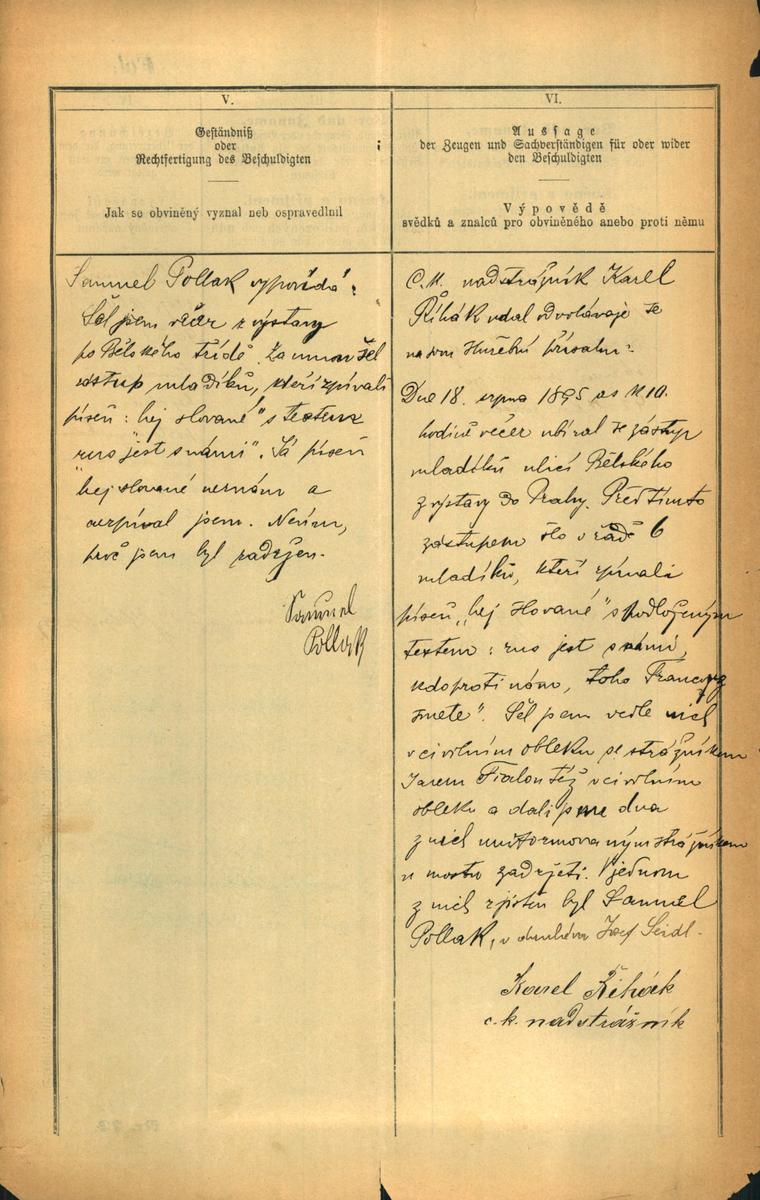 V.
Geständniß
oder
Rechtfertigung des Beschuldigten
Jak se obviněný vyznal neb ospravedlnil
Samuel Pollak vypovídá:
Šel jsem večer z výstavy
po Bělského třídě. Za mnou šel
zástup mladíků, kteří zpívali
píseň: hej slované" s textem
rus "jest s námi". Já píseň
"hej slované neznám a
nezpíval jsem. Nevím,
proč jsem byl zadržen.
Samuel
Pollak
VI.
Aussage
der Zeugen und Sachverständigen für oder wider
den Beschuldigten
Výpovědě
svědků a znalců pro obviněného anebo proti němu
C. k. nadstrážník Karel
Řihák udal odvolávaje se
na svou služební přísahu:
Dne 18. srpna 1895 as k 10.
hodině večer ubíral se zástup
mladíků ulicí Bělského
z výstavy do Prahy. Před tímto
zástupem šlo v řadě 6
mladíků, kteří zpívali
píseň „hej slované" s podloženým
textem: rus jest s námi,
kdo proti nám, toho Francouz
smete". Šel jsem vedle nich
v civilním obleku se strážníkem
Janem Fialou též v civilním
obleku a dali jsme dva
z nich uniformovaným strážníkem
u mostu zadržeti. V jednom
z nich zjištěn byl Samuel
Pollak, v druhém Josef Seidl.
Karel Řihák
c. k. nadstrážník